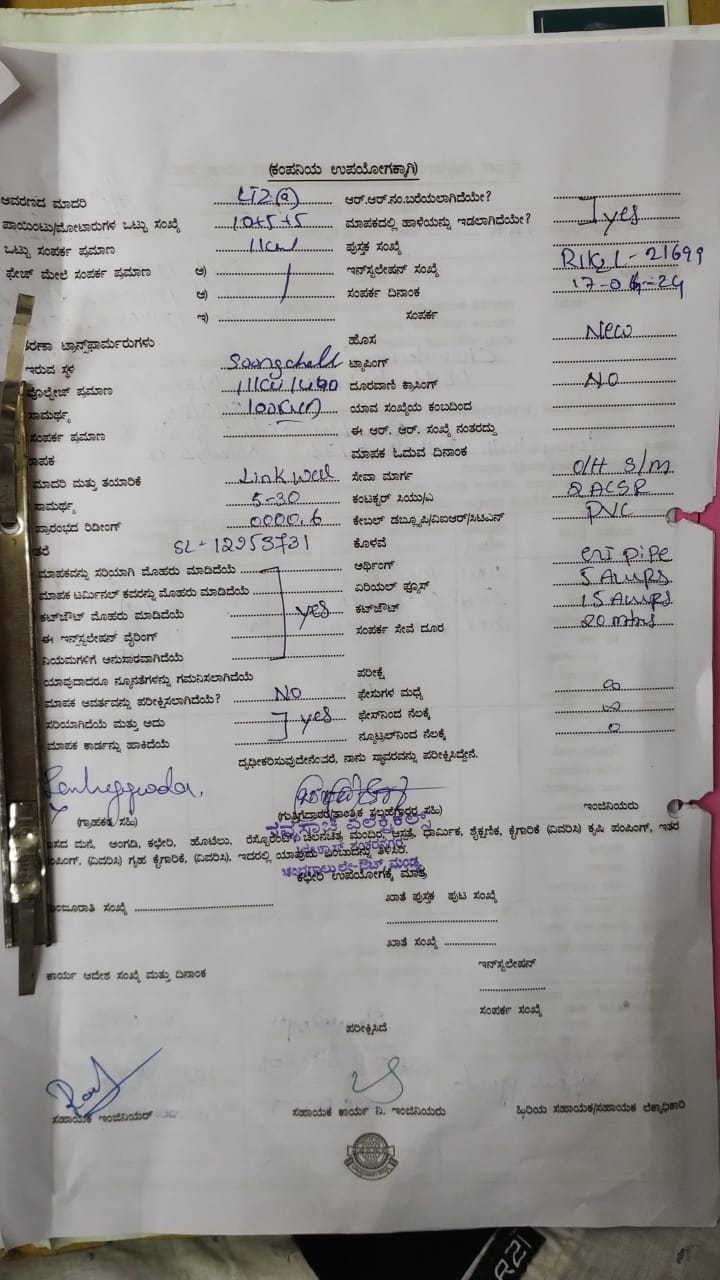 (ಕಂಪನಿಯ ಉಪಯೋಗಕ್ಕಾಗಿ)
ಆವರಣದ ಮಾದರಿ LT2(a) ಆರ್.ಆರ್.ನಂ.ಬರೆಯಲಾಗಿದೆಯೇ?
ಪಾಯಿಂಟು/ಮೋಟಾರುಗಳ ಒಟ್ಟು ಸಂಖ್ಯೆ 10+5+5 ಮಾಪಕದಲ್ಲಿ ಹಾಳೆಯನ್ನು ಇಡಲಾಗಿದೆಯೇ? yes
ಒಟ್ಟು ಸಂಪರ್ಕ ಪ್ರಮಾಣ ಪುಸ್ತಕ ಸಂಖ್ಯೆ
ಫೇಜ್ ಮೇಲೆ ಸಂಪರ್ಕ ಪ್ರಮಾಣ ಅ) ಇನ್‌ಸ್ಟಲೇಷನ್ ಸಂಖ್ಯೆ 21699
ಆ) ಸಂಪರ್ಕ ದಿನಾಂಕ 17-06-24
ಇ) ಸಂಪರ್ಕ
ಟ್ರಾನ್ಸ್‌ಫಾರ್ಮರುಗಳು ಹೊಸ New
ಇರುವ ಸ್ಥಳ ಟ್ಯಾಪಿಂಗ್
ವೋಲ್ಟೇಜ್ ಪ್ರಮಾಣ ದೂರವಾಣಿ ಕ್ರಾಸಿಂಗ್ NO
ಸಾಮರ್ಥ್ಯ 100KVA ಯಾವ ಸಂಖ್ಯೆಯ ಕಂಬದಿಂದ
ಸಂಪರ್ಕ ಪ್ರಮಾಣ ಈ ಆರ್. ಆರ್. ಸಂಖ್ಯೆ ನಂತರದ್ದು
ಮಾಪಕ ಓದುವ ದಿನಾಂಕ
ಮಾದರಿ ಮತ್ತು ತಯಾರಿಕೆ Link well ಸೇವಾ ಮಾರ್ಗ O/H S/m
ಸಾಮರ್ಥ್ಯ 5-30 ಕಂಟಕ್ಟರ್ ಸಿಯು/ಎ
ಪ್ರಾರಂಭದ ರಿಡೀಂಗ್ 0000.6 ಕೇಬಲ್ ಡಬ್ಲ್ಯೂಪಿ/ವಿಐಆರ್/ಸಿಟಿಎಸ್ PVC
SL-12953731 ಕೊಳವೆ
ಮಾಪಕವನ್ನು ಸರಿಯಾಗಿ ಮೊಹರು ಮಾಡಿದೆಯೆ ಅರ್ಥಿಂಗ್ pipe
ಮಾಪಕ ಟರ್ಮಿನಲ್ ಕವರನ್ನು ಮೊಹರು ಮಾಡಿದೆಯೆ ಏರಿಯಲ್ ಫ್ಯೂಸ್ 5 Amps
ಕಟ್‌ಔಟ್ ಮೊಹರು ಮಾಡಿದೆಯೆ yes ಕಟ್‌ಔಟ್ 15 Amps
ಈ ಇನ್‌ಸ್ಟಲೇಷನ್ ವೈರಿಂಗ್ ಸಂಪರ್ಕ ಸೇವೆ ದೂರ 20 mtrs
ನಿಯಮಗಳಿಗೆ ಅನುಸಾರವಾಗಿದೆಯೆ
ಯಾವುದಾದರೂ ನ್ಯೂನತೆಗಳನ್ನು ಗಮನಿಸಲಾಗಿದೆಯೆ ಪರೀಕ್ಷೆ
ಮಾಪಕ ಆವರ್ತವನ್ನು ಪರೀಕ್ಷಿಸಲಾಗಿದೆಯೆ? NO ಫೇಸುಗಳ ಮಧ್ಯೆ ∞
ಸರಿಯಾಗಿದೆಯೆ ಮತ್ತು ಅದು yes ಫೇಸ್‌ನಿಂದ ನೆಲಕ್ಕೆ ∞
ಮಾಪಕ ಕಾರ್ಡನ್ನು ಹಾಕಿದೆಯೆ ನ್ಯೂಟ್ರಲ್‌ನಿಂದ ನೆಲಕ್ಕೆ 0
ದೃಢೀಕರಿಸುವುದೇನೆಂದರೆ, ನಾನು ಸ್ಥಾವರವನ್ನು ಪರೀಕ್ಷಿಸಿದ್ದೇನೆ.
(ಗ್ರಾಹಕರ ಸಹಿ) (ಗುತ್ತಿಗೆದಾರರ/ತಾಂತ್ರಿಕ ಸಲಹೆಗಾರರ ಸಹಿ) ಇಂಜಿನಿಯರು
ಮನೆ, ಅಂಗಡಿ, ಕಛೇರಿ, ಹೊಟೇಲು, ರೆಸ್ಟೋರೆಂಟ್, ಚಲನಚಿತ್ರ ಮಂದಿರ, ಆಸ್ಪತ್ರೆ, ಧಾರ್ಮಿಕ, ಶೈಕ್ಷಣಿಕ, ಕೈಗಾರಿಕೆ (ವಿವರಿಸಿ) ಕೃಷಿ ಪಂಪಿಂಗ್, ಇತರ
(ವಿವರಿಸಿ) ಗೃಹ ಕೈಗಾರಿಕೆ, (ವಿವರಿಸಿ), ಇದರಲ್ಲಿ ಯಾವುದು ಎಂಬುದನ್ನು ತಿಳಿಸಿರಿ.
ಕಛೇರಿ ಉಪಯೋಗಕ್ಕೆ ಮಾತ್ರ
ಮಂಜೂರಾತಿ ಸಂಖ್ಯೆ ಖಾತೆ ಪುಸ್ತಕ ಪುಟ ಸಂಖ್ಯೆ
ಖಾತೆ ಸಂಖ್ಯೆ
ಕಾರ್ಯ ಆದೇಶ ಸಂಖ್ಯೆ ಮತ್ತು ದಿನಾಂಕ ಇನ್‌ಸ್ಟಲೇಷನ್
ಸಂಪರ್ಕ ಸಂಖ್ಯೆ
ಪರೀಕ್ಷಿಸಿದೆ
ಸಹಾಯಕ ಇಂಜಿನಿಯರ್ ಸಹಾಯಕ ಕಾರ್ಯ ನಿ. ಇಂಜಿನಿಯರು ಹಿರಿಯ ಸಹಾಯಕ/ಸಹಾಯಕ ಲೆಕ್ಕಾಧಿಕಾರಿ